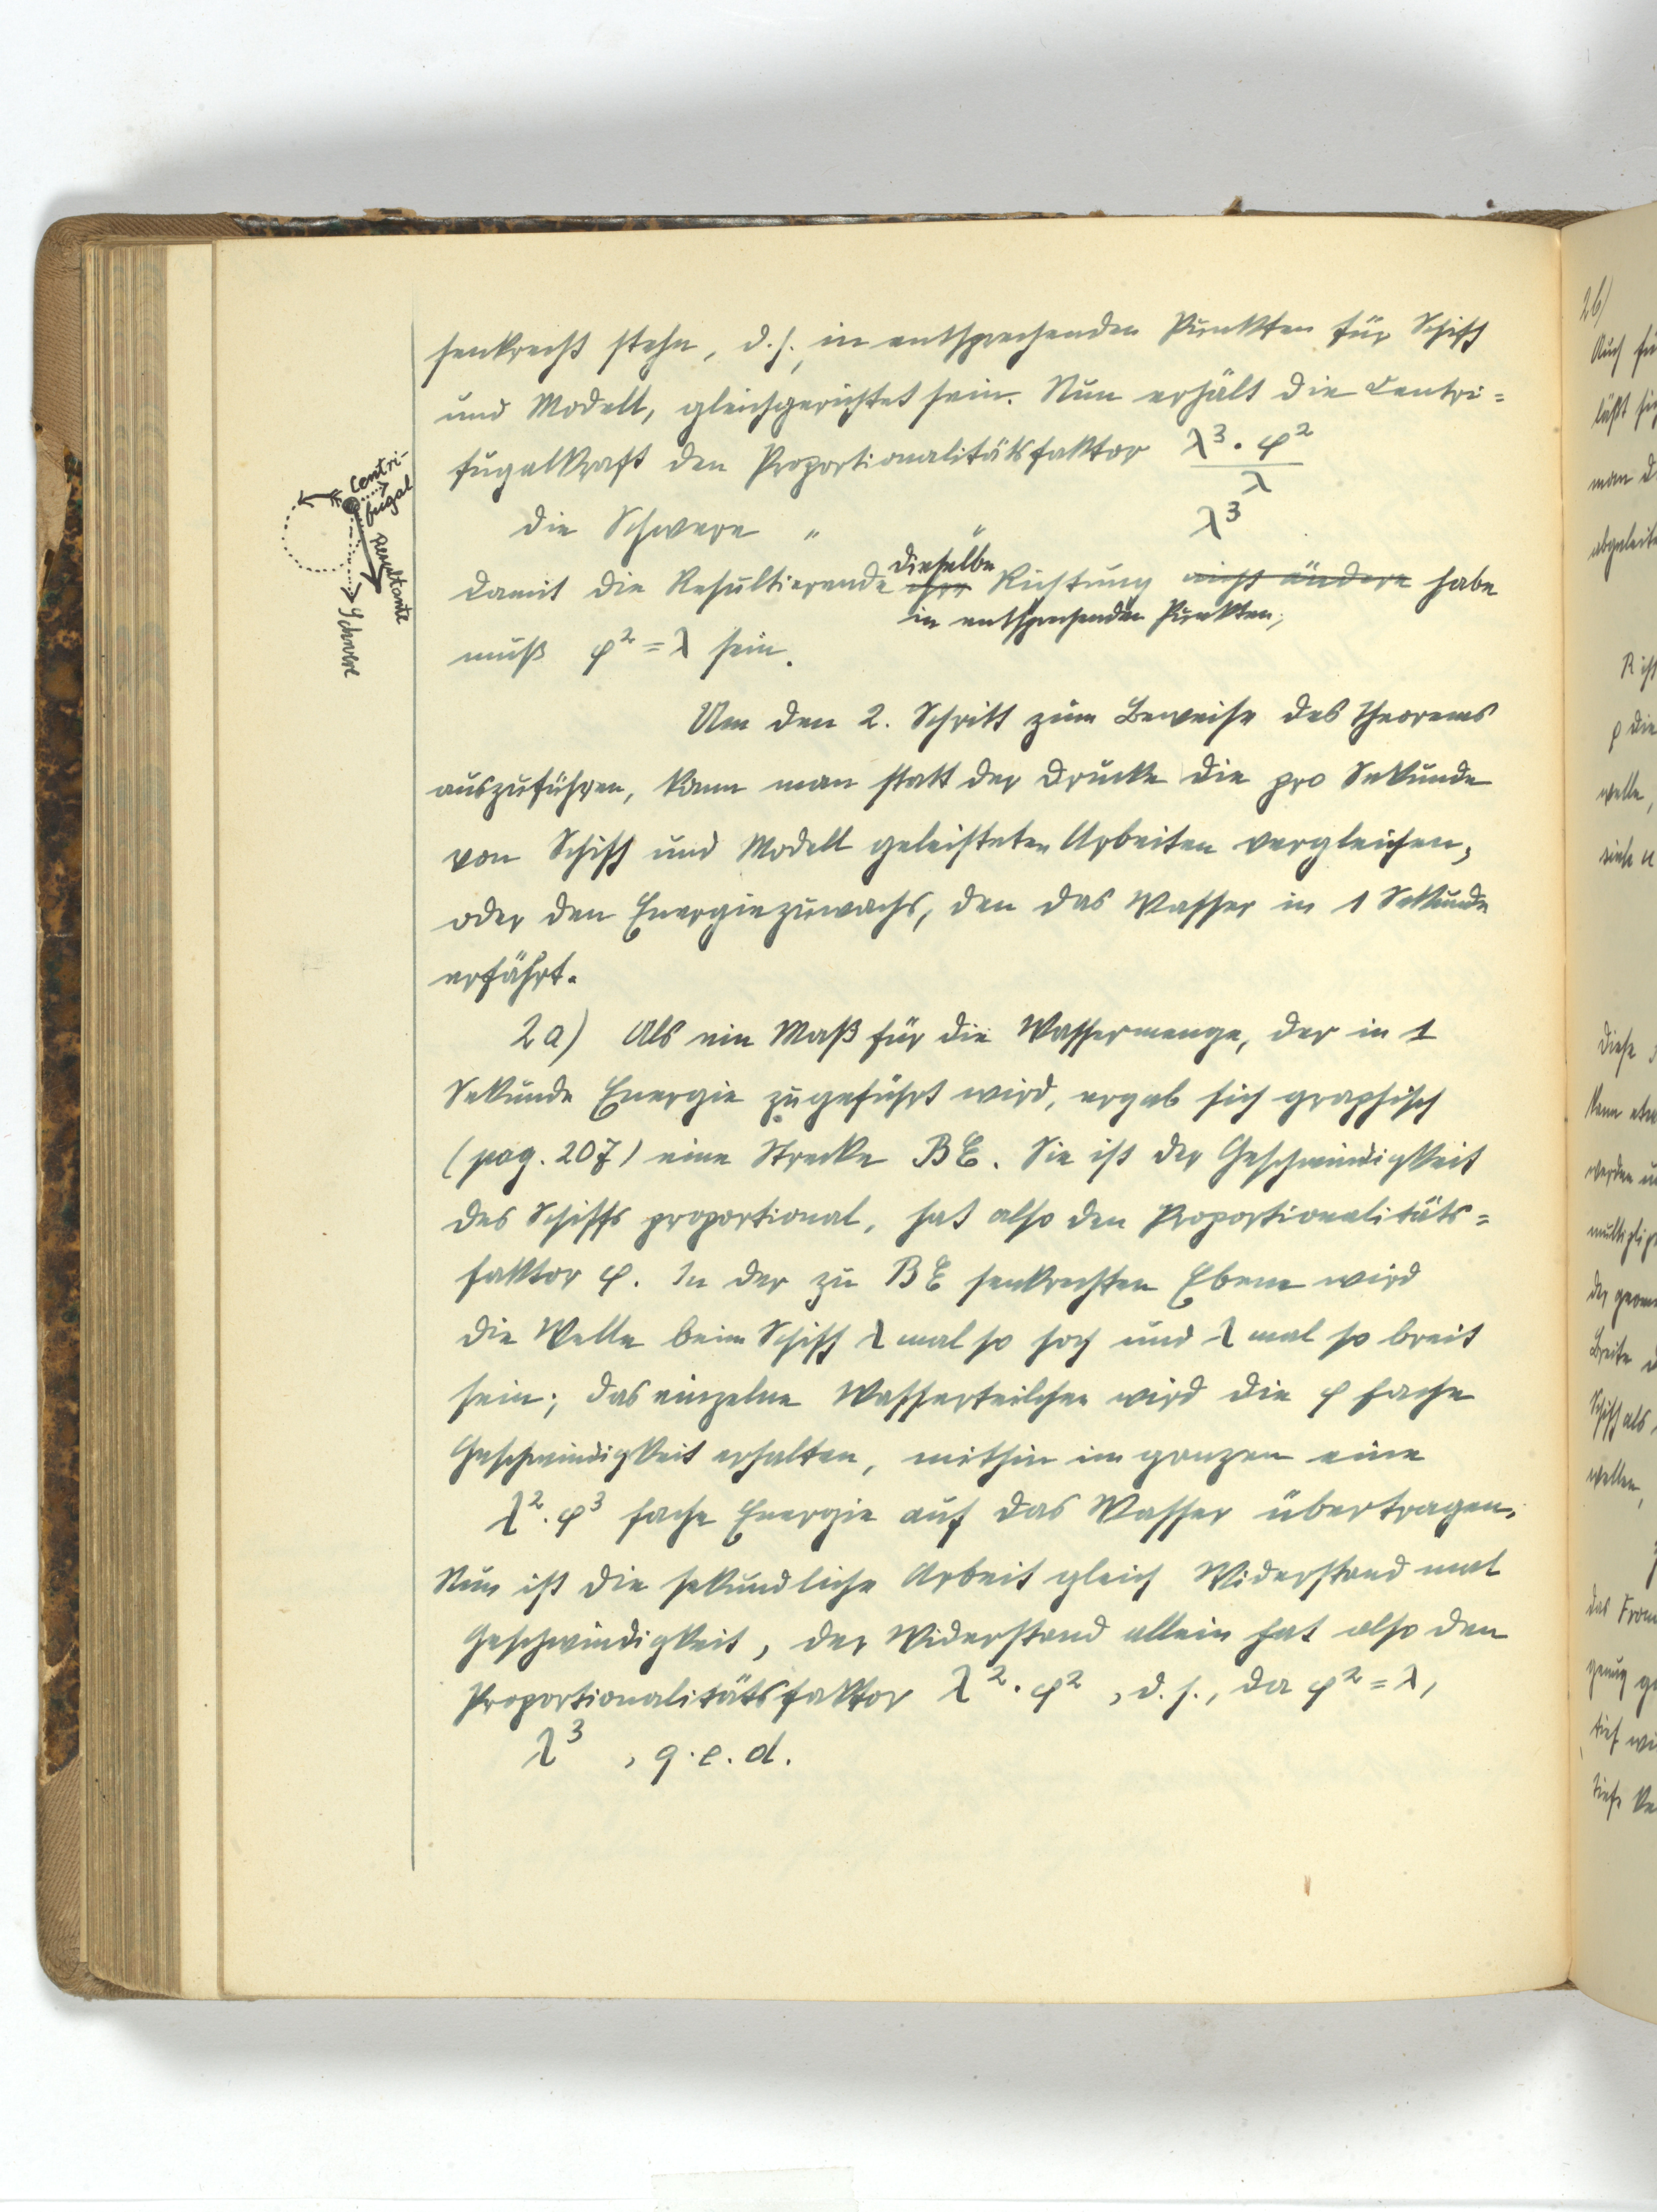 senkrecht stehn, d.h., in entsprechenden Punkten für Schiff
und Modell, gleichgerichtet sein. Nun erhält die Centri=
fugalkraft den Proportionalitätsfaktor λ³·φ²/λ
die Schwere " " λ³
damit die Resultierende ihre dieselbe Richtung nicht ändere habe
in entsprechenden Punkten,
muß φ² = λ sein.
Centri-
fugal
resultante
Schwere
Um den 2. Schritt zum Beweise des Theorems
auszuführen, kann man statt der Drucke die pro Sekunde
von Schiff und Modell geleisteten Arbeiten vergleichen,
oder den Energiezuwachs, den das Wasser in 1 Sekunde
erfährt.
2a) Als ein Maß für die Wassermenge, der in 1
Sekunde Energie zugeführt wird, ergab sich graphisch
(pag. 207) eine Strecke BE. Sie ist der Geschwindigkeit
des Schiffs proportional, hat also den Proportionalitäts=
faktor φ. In der zu BE senkrechten Ebene wird
die Welle beim Schiff λ mal so hoch und λ mal so breit
sein; das einzelne Wasserteilchen wird die φ fache
Geschwindigkeit erhalten, mithin im ganzen eine
λ²·φ³ fache Energie auf das Wasser übertragen.
Nun ist die sekundliche Arbeit gleich Widerstand mal
Geschwindigkeit, der Widerstand allein hat also den
Proportionalitätsfaktor λ²·φ², d.h., da φ² = λ,
λ³, q.e.d.
2b)
Auch fü
läßt sic
man d
abgeleite
R ist
ρ die
welle,
siehe u
Diese
kann etw
werden u
multiplizi
der geom
Breite d
Schiff als
wellen,
das Fro
genug ge
tief wi